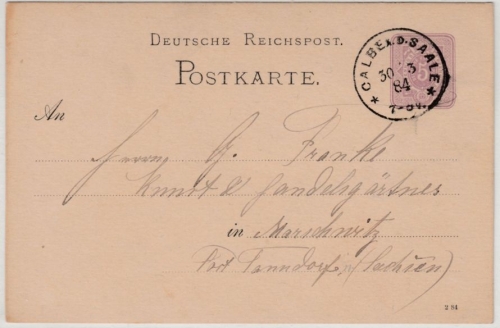 DEUTSCHE REICHSPOST.
POSTKARTE.
CALBE A.D. SAALE
30 3
84
7-8V.
5
An
Herrn G. Franke
Kunst & Handelsgärtner
in Marschwitz
Post Tanndorf, (Sachsen)
2 84